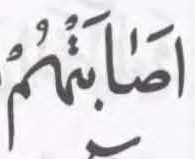 اصَٰابَتْهُمْ